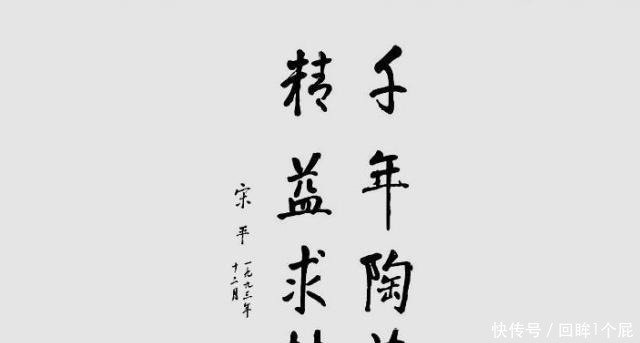 千年陶
精益求
宋平
一九九三年
十二月
快传号 / 回眸1个屁